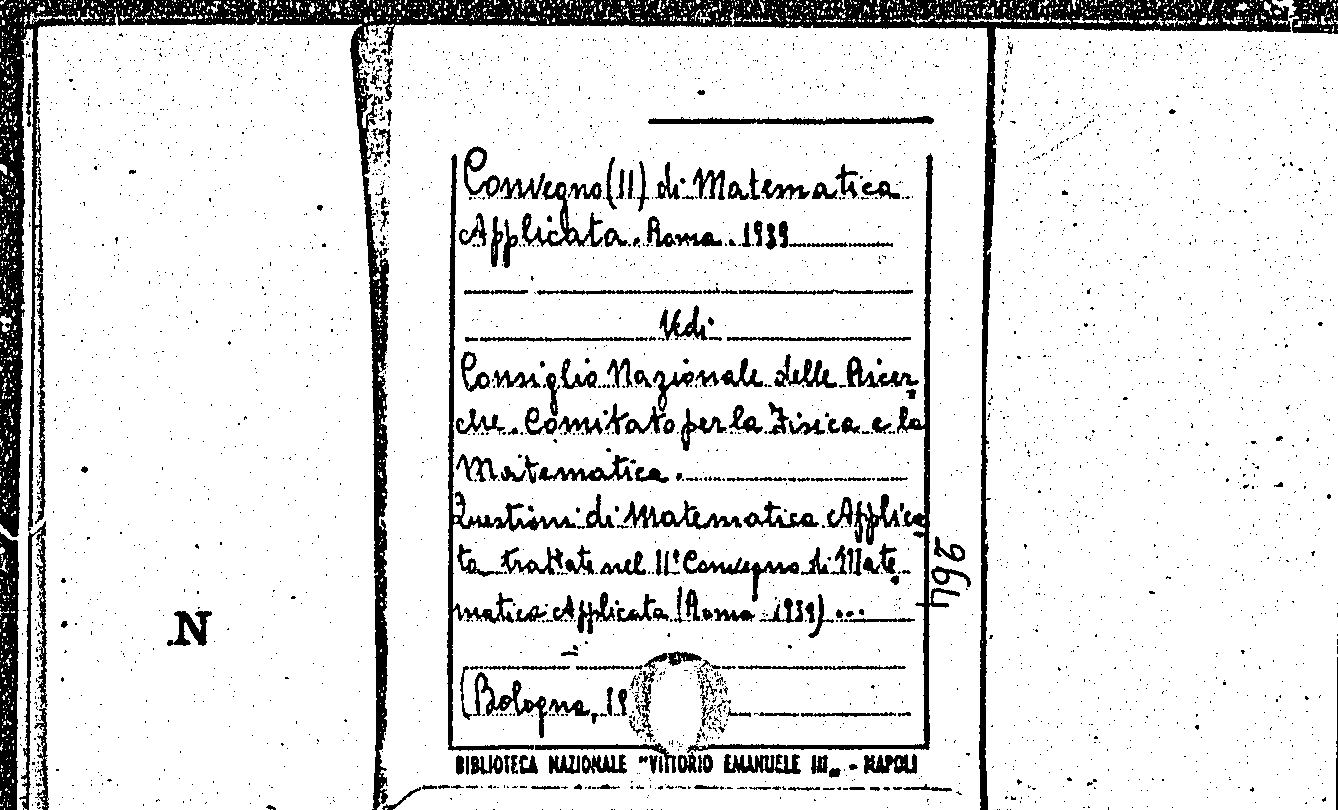 Convegno (II) di Matematica
Applicata. Roma. 1939
Vedi
Consiglio Nazionale delle Ricer-
che. Comitato per la Fisica e la
Matematica.
Questioni di Matematica Applica-
ta trattate nel II° Convegno di Mate-
matica Applicata (Roma 1939)...
(Bologna, 19
BIBLIOTECA NAZIONALE "VITTORIO EMANUELE III„ - NAPOLI
264
.N